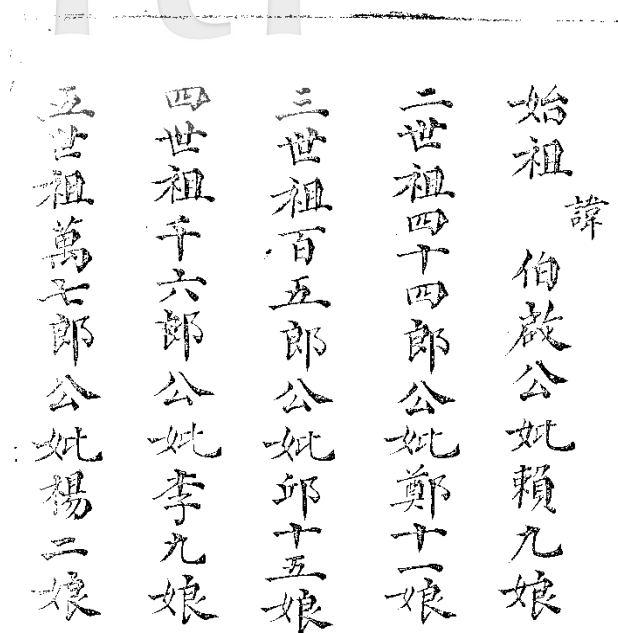 始祖諱伯啟公妣賴九娘
二世祖四十四郎公妣鄭十一娘
三世祖百五郎公妣邱十五娘
四世祖千六郎公妣李九娘
五世祖萬七郎公妣楊二娘